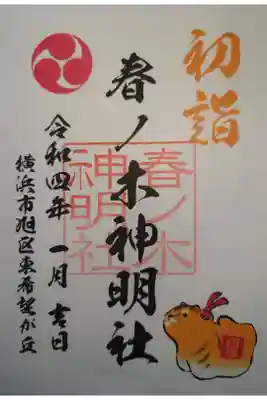 初詣
春ノ木神明社
春ノ木
神明社
令和四年 一月 吉日
横浜市旭区東希望が丘